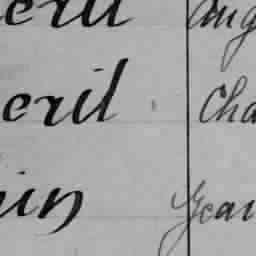 eril Aug
eril Cha
in Jean